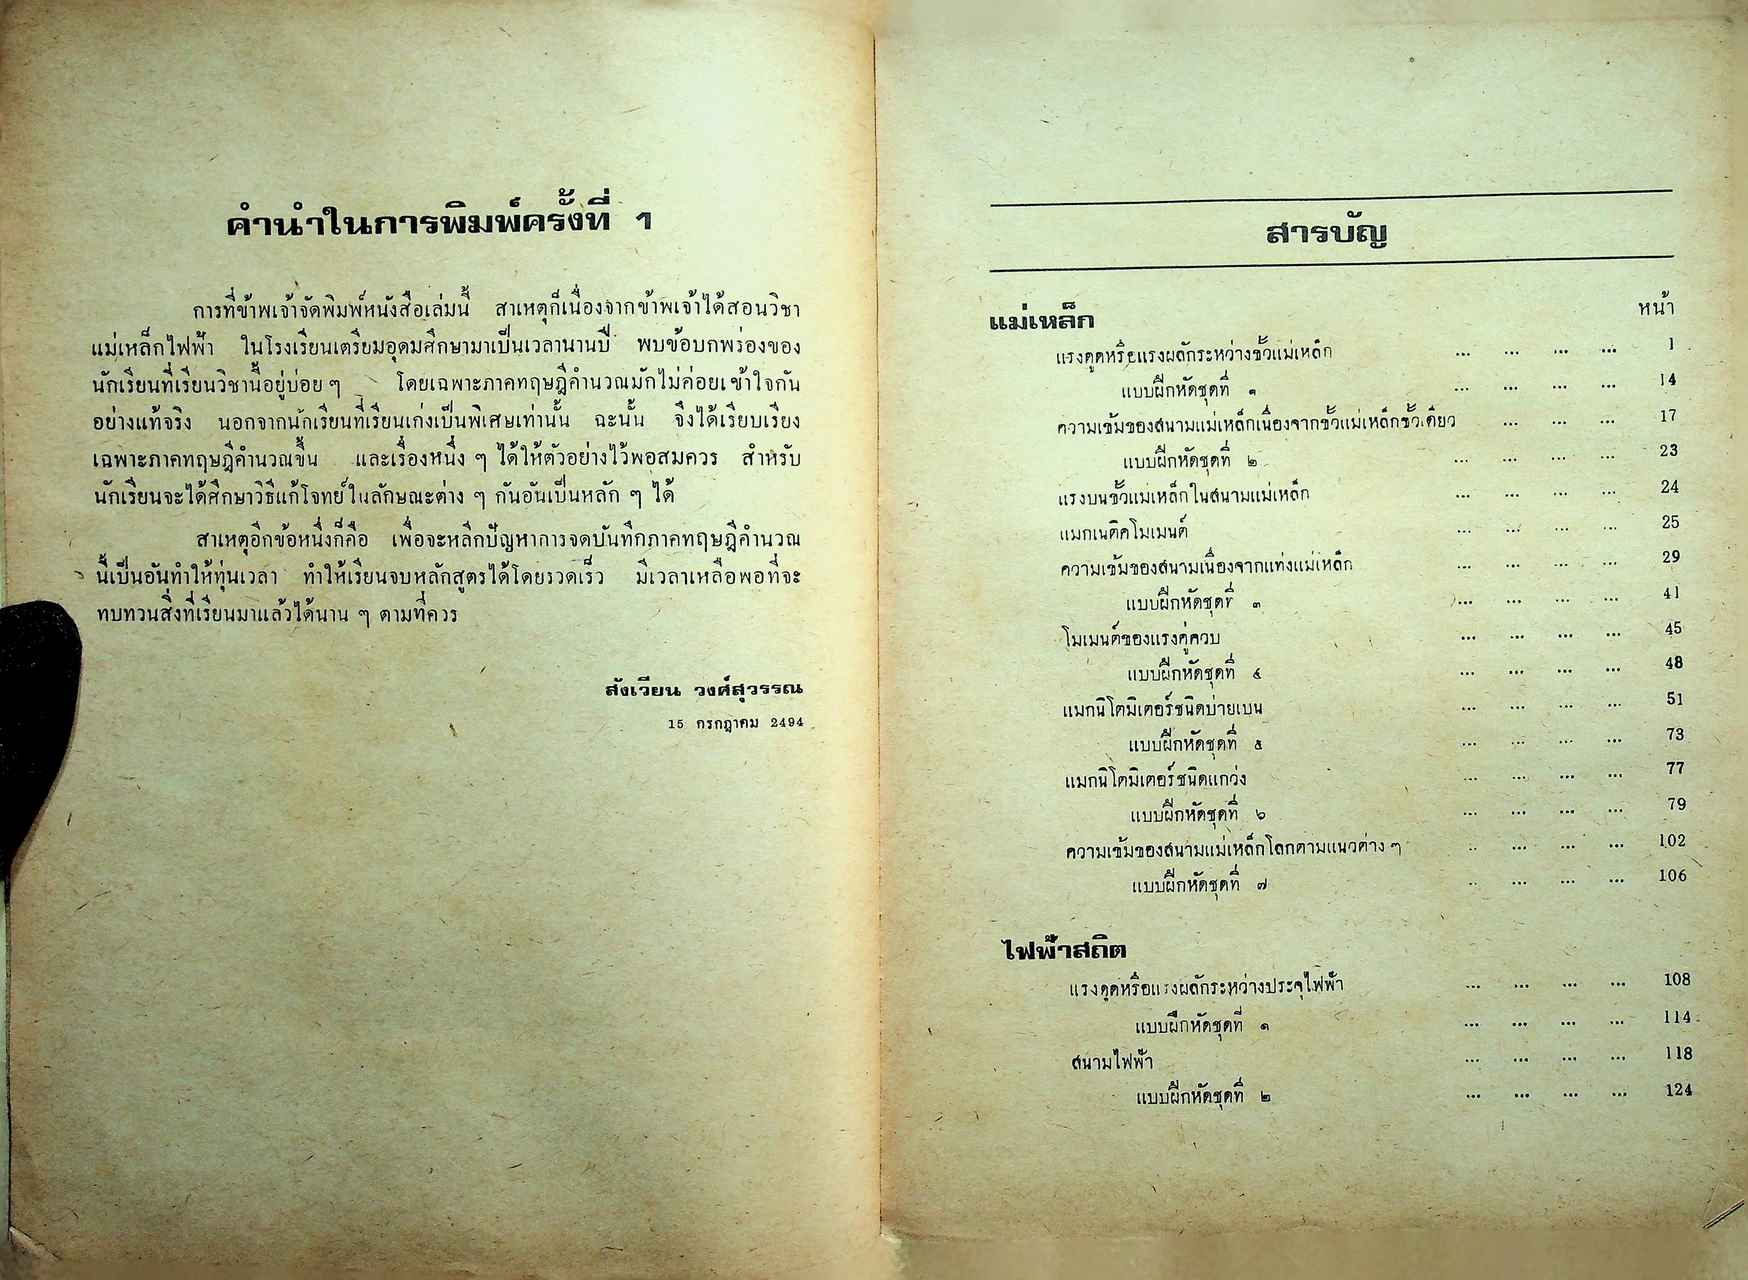 คำนำในการพิมพ์ครั้งที่ 1
การที่ข้าพเจ้าจัดพิมพ์หนังสือเล่มนี้ สาเหตุก็เนื่องจากข้าพเจ้าได้สอนวิชา
แม่เหล็กไฟฟ้า ในโรงเรียนเตรียมอุดมศึกษามาเป็นเวลานานปี พบข้อบกพร่องของ
นักเรียนที่เรียนวิชานี้อยู่บ่อย ๆ โดยเฉพาะภาคทฤษฎีคำนวณมักไม่ค่อยเข้าใจกัน
อย่างแท้จริง นอกจากนักเรียนที่เรียนเก่งเป็นพิเศษเท่านั้น ฉะนั้น จึงได้เรียบเรียง
เฉพาะภาคทฤษฎีคำนวณขึ้น และเรื่องหนึ่ง ๆ ได้ให้ตัวอย่างไว้พอสมควร สำหรับ
นักเรียนจะได้ศึกษาวิธีแก้โจทย์ในลักษณะต่าง ๆ กันอันเป็นหลัก ๆ ได้
สาเหตุอีกข้อหนึ่งก็คือ เพื่อจะหลีกปัญหาการจดบันทึกภาคทฤษฎีคำนวณ
นี้เป็นอันทำให้ทุ่นเวลา ทำให้เรียนจบหลักสูตรได้โดยรวดเร็ว มีเวลาเหลือพอที่จะ
ทบทวนสิ่งที่เรียนมาแล้วได้นาน ๆ ตามที่ควร
สังเวียน วงศ์สุวรรณ
15 กรกฎาคม 2494
สารบัญ
หน้า
แม่เหล็ก
แรงดูดหรือแรงผลักระหว่างขั้วแม่เหล็ก ... ... ... ... 1
แบบฝึกหัดชุดที่ ๑ ... ... ... ... 14
ความเข้มของสนามแม่เหล็กเนื่องจากขั้วแม่เหล็กขั้วเดียว ... ... ... 17
แบบฝึกหัดชุดที่ ๒ ... ... ... ... 23
แรงบนขั้วแม่เหล็กในสนามแม่เหล็ก ... ... ... ... 24
แมกเนติคโมเมนต์ ... ... ... ... 25
ความเข้มของสนามเนื่องจากแท่งแม่เหล็ก ... ... ... ... 29
แบบฝึกหัดชุดที่ ๓ ... ... ... ... 41
โมเมนต์ของแรงคู่ควบ ... ... ... ... 45
แบบฝึกหัดชุดที่ ๔ ... ... ... ... 48
แมกนิโตมิเตอร์ชนิดบ่ายเบน ... ... ... ... 51
แบบฝึกหัดชุดที่ ๕ ... ... ... ... 73
แมกนิโตมิเตอร์ชนิดแกว่ง ... ... ... ... 77
แบบฝึกหัดชุดที่ ๖ ... ... ... ... 79
ความเข้มของสนามแม่เหล็กโลกตามแนวต่าง ๆ .. ... ... ... 102
แบบฝึกหัดชุดที่ ๗ .. ... ... ... 106
ไฟฟ้าสถิต
แรงดูดหรือแรงผลักระหว่างประจุไฟฟ้า ... ... ... ... 108
แบบฝึกหัดชุดที่ ๑ ... ... ... ... 114
สนามไฟฟ้า ... ... ... ... 118
แบบฝึกหัดชุดที่ ๒ ... ... ... ... 124